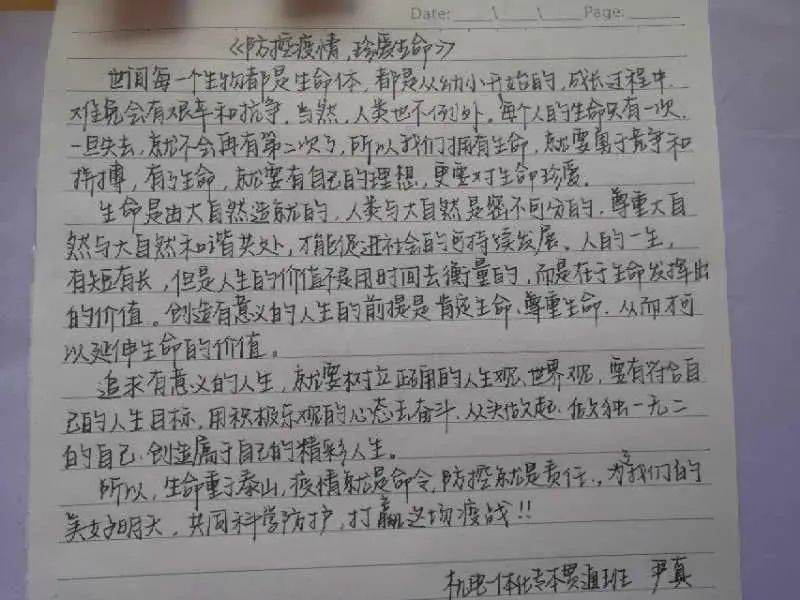 Date: \ \ Page:
《防控疫情,珍爱生命》
世间每一个生物都是生命体,都是从幼小开始的,成长过程中
难免会有艰辛和抗争。当然,人类也不例外。每个人的生命只有一次,
一旦失去,就不会再有第二次了,所以我们拥有生命,就要勇于竞争和
拼搏,有了生命,就要有自己的理想,更要对生命珍爱。
生命是由大自然造就的,人类与大自然是密不可分的,尊重大自
然与大自然和谐共处,才能促进社会的可持续发展。人的一生,
有短有长,但是人生的价值不是用时间去衡量的,而是在于生命发挥出
的价值。创造有意义的人生的前提是肯定生命、尊重生命.从而才可
以延伸生命的价值。
追求有意义的人生,就要树立正确的人生观、世界观,要有符合自
己的人生目标,用积极乐观的心态去奋斗.从头做起.做独一无二
的自己.创造属于自己的精彩人生。
所以,生命重于泰山,疫情就是命令,防控就是责任.,为了我们的
美好明天,共同科学防护,打赢这场疫战!!
机电一体化专本贯通班 尹真